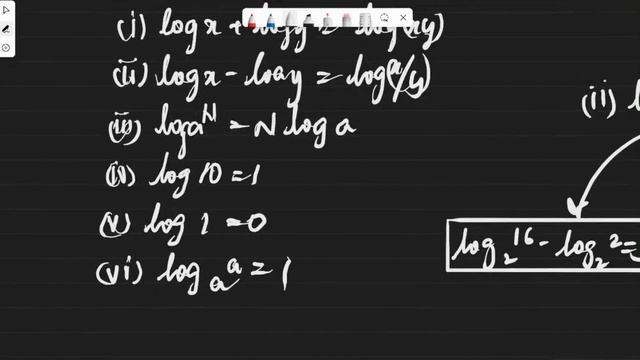 (i) log x + log y = log(xy)
(ii) log x - log y = log(x/y)
(iii) log a^N = N log a
(iv) log 10 = 1
(v) log 1 = 0
(vi) log_a a = 1
(ii)
log_2 16 - log_2 2 =